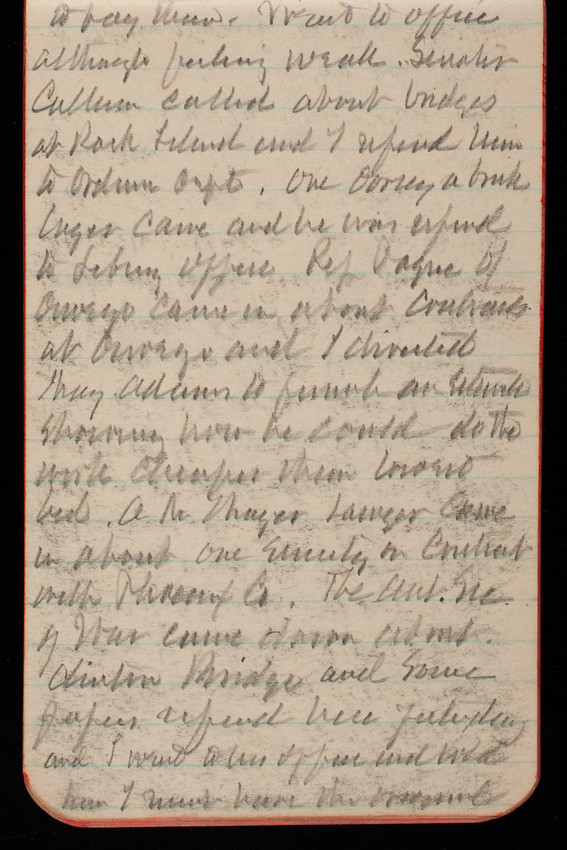 to pay him. Went to office
although feeling weak. Senator
Cullum called about bridges
at Rock Island and I referred him
to Ordnance Dept. One Dorsey a
came and he was referred
to office Rep Payne of
Oswego came in about Contracts
at Oswego and I directed
May Adams to furnish an Estimate
Showing how he could do the
work cheaper than lowest
bid. A M Thayer Lawyer came
in about one Security on Contract
with Phoenix Co. The Act. Sec
of War came down about
Clinton Bridge and some
papers referred here yesterday
and I went to his office and told
him I must have the